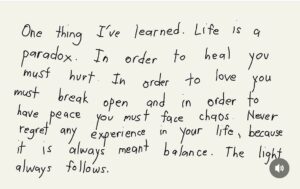 One thing I've learned. Life is a
paradox. In order to heal you
must hurt. In order to love you
must break open and in order to
have peace you must face chaos. Never
regret any experience in your life, because
it is always meant balance. The light
always follows.